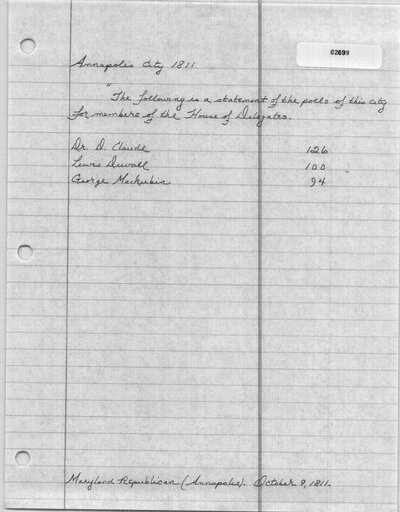 02699
Annapolis City 1811
"The following is a statement of the polls of this city
for members of the House of Delegates.
Dr. D. Claude 126
Lewis Duvall 100 "
George Mackubin 94
Maryland Republican (Annapolis). October 9, 1811.